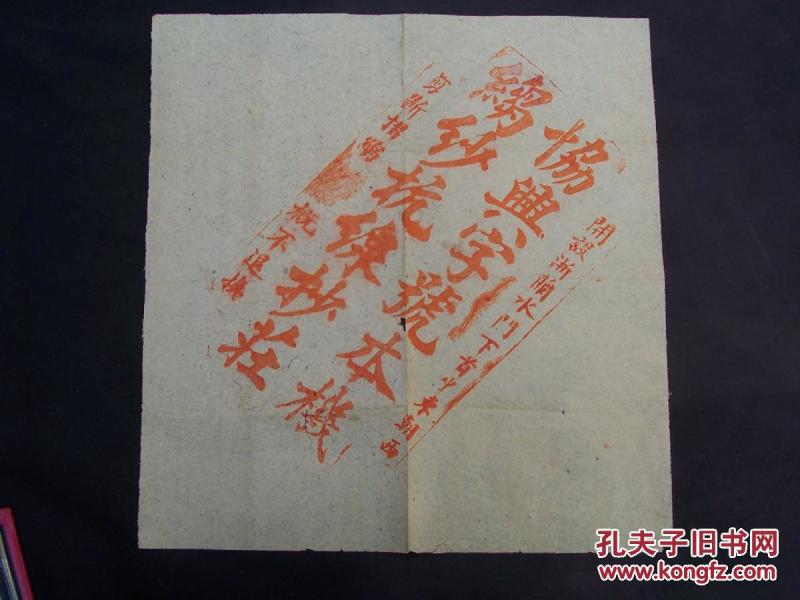 開設浙蘭水門下首東朝西
協興字號本機
縐紗杭線莊
剪斷 概不退換
孔夫子旧书网
www.kongfz.com